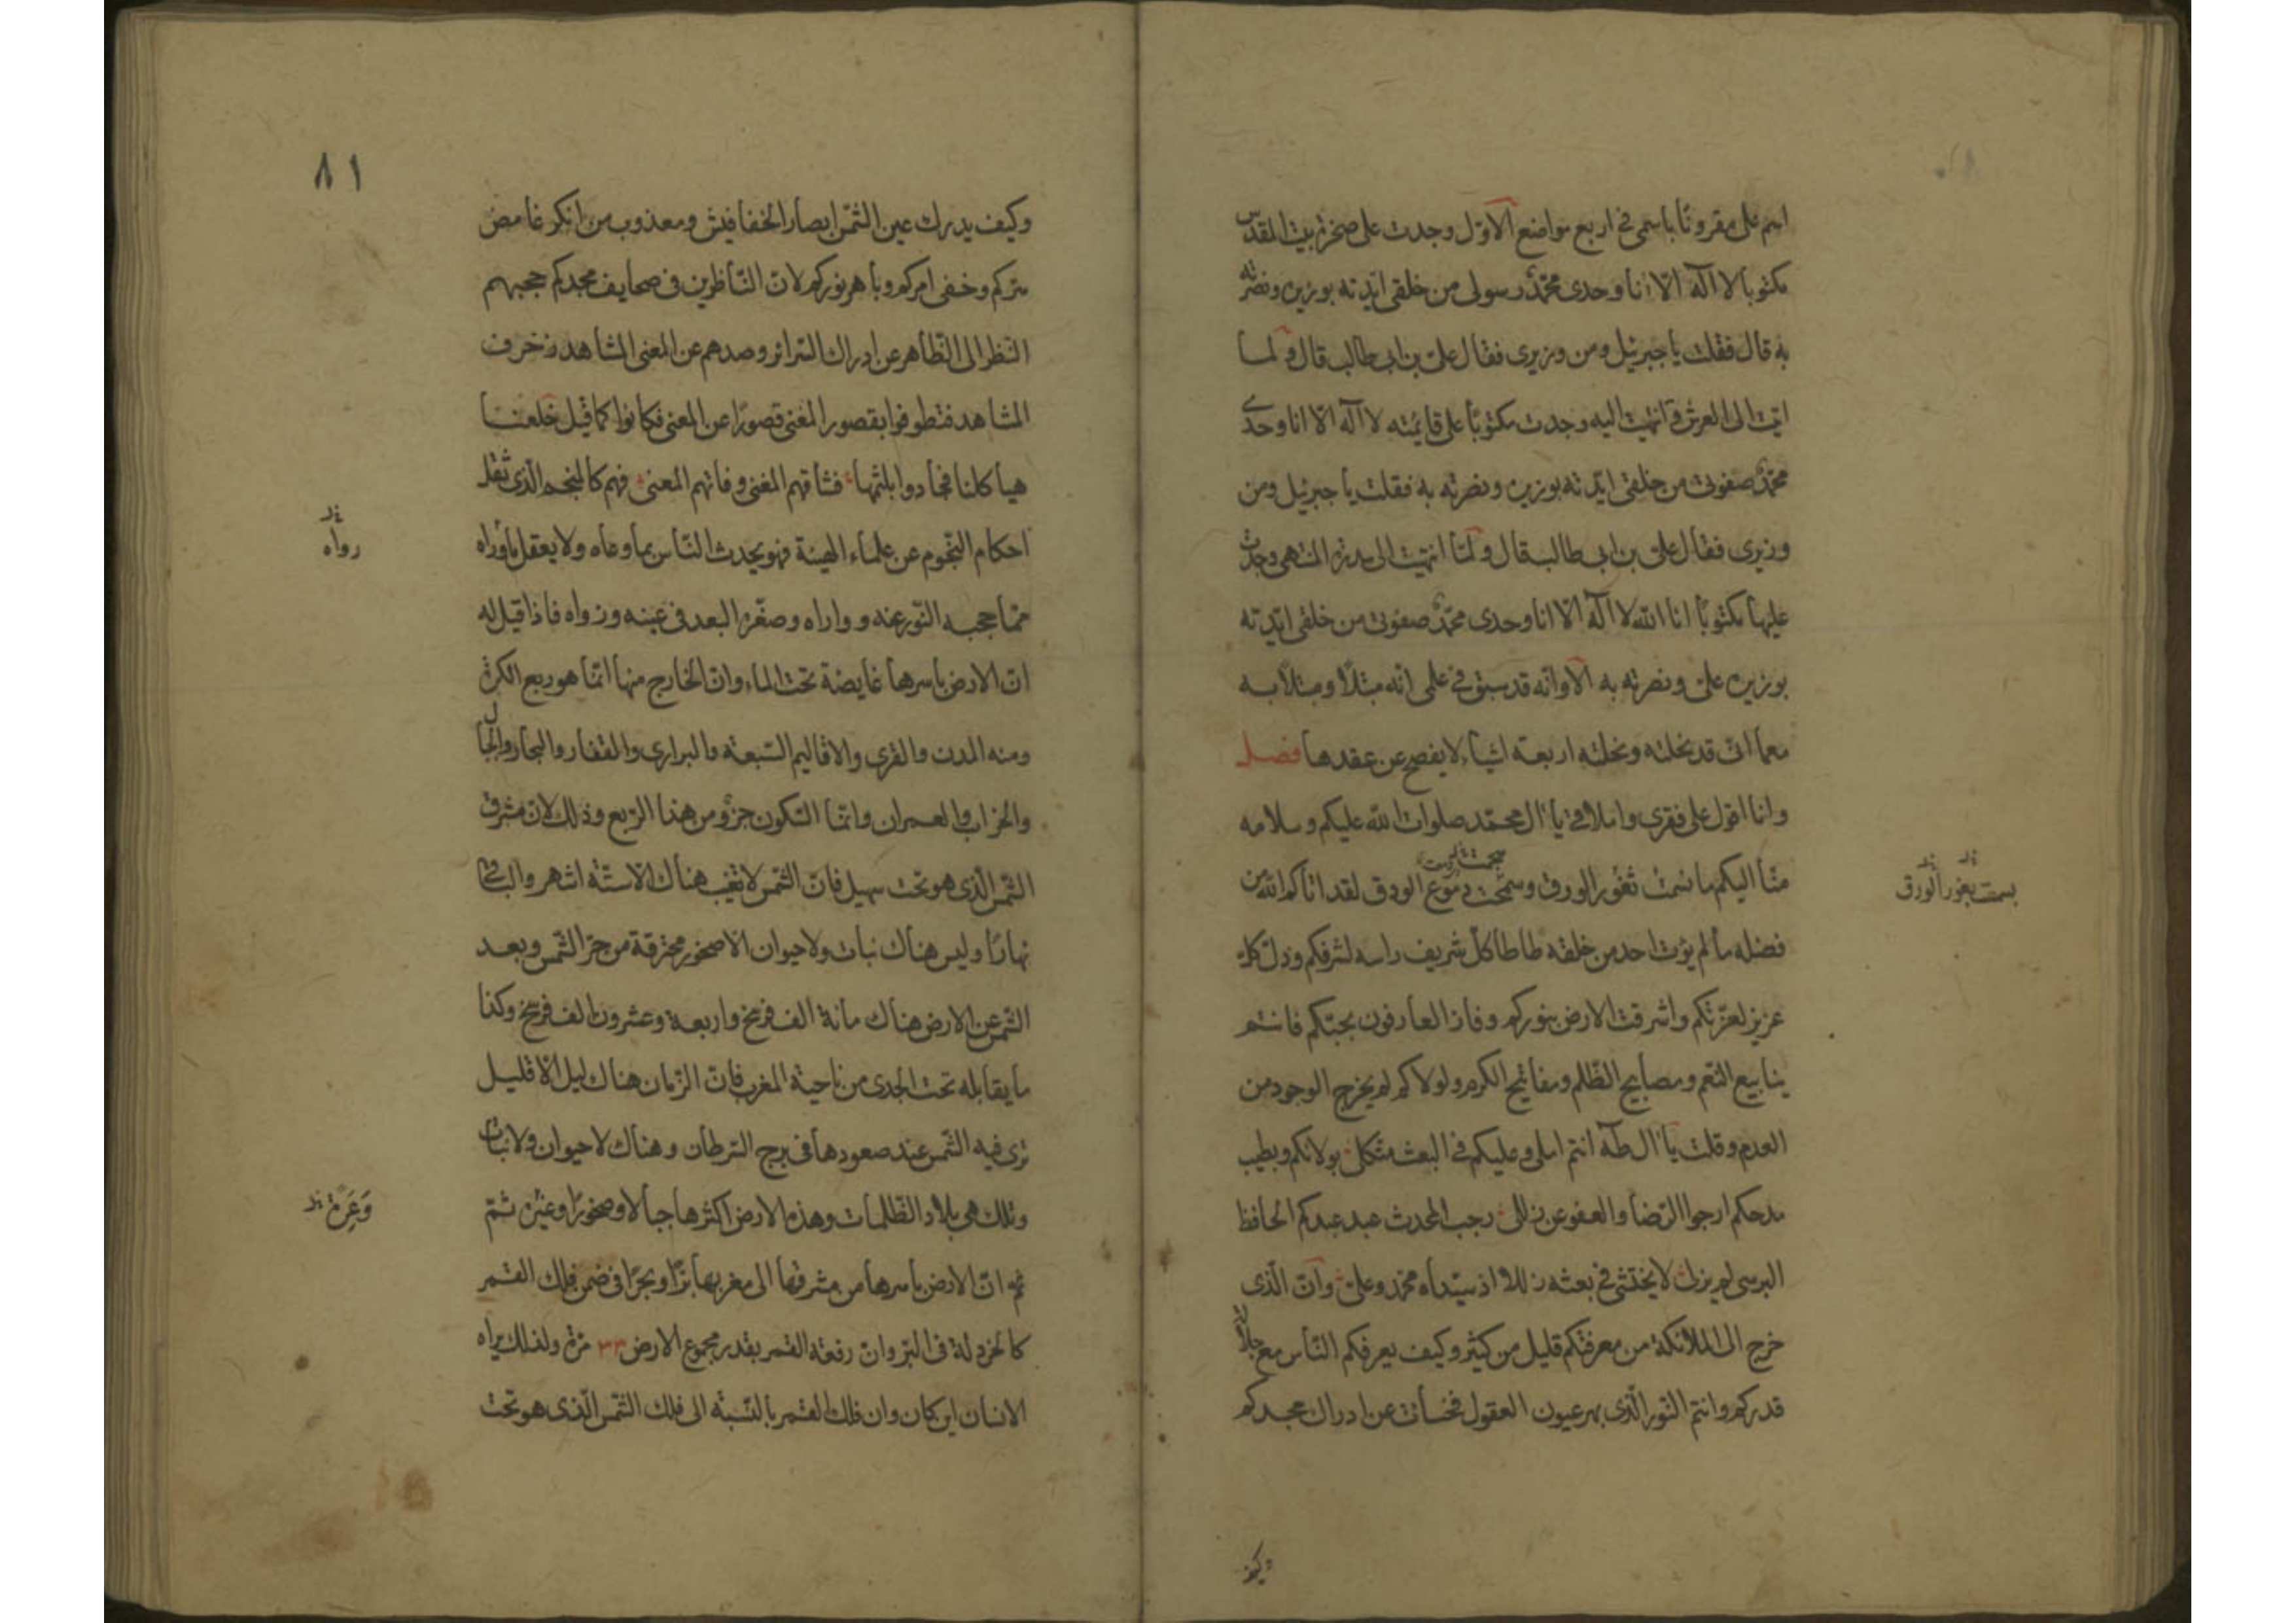 اسم علي مقرونًا باسمي في اربع مواضع الاوّل وجدت على صخرة بيت المقدّس
مكتوبا لا اله الّا انا وحدي محمّد رسولي من خلقي ايّدته بوزيره ونصرته
به قال فقلت يا جبرئيل ومن وزيري فقال عليّ بن ابي طالب قال ولمّا
اتيت الى العرش وانتهيت اليه وجدت مكتوبًا على قايمته لا اله الّا انا وحدي
محمّد صفوتي من خلقي ايّدته بوزيره ونصرته به فقلت يا جبرئيل ومن
وزيري فقال عليّ بن ابي طالب قال ولمّا انتهيت الى سدرة المنتهى وجدت
عليها مكتوبًا انا الله لا اله الّا انا وحدي محمّد صفوتي من خلقي ايّدته
بوزيره عليّ ونصرته به الا وانّه قد سبق في علمي انّه مبتلًا ومبتلًا به
مع ما انّي قد نحلته ونحلته اربعة اشياء لا يفصح عن عقدها فصل
وانا اقول على فقري واملاقي يا آل محمّد صلوات الله عليكم وسلامه
منّا اليكم ما نسمت ثغور الورق وسمحت دموع الودق لقد اتاكم الله من
بسمت بغور الورق
فضله ما لم يؤت احد من خلقه طاطا كلّ شريف راسه لشرفكم وذلّ كلّ
عزيز لعزّتكم واشرقت الارض بنوركم وفاز العارفون بحبّكم فانتم
ينابيع النّعم ومصابيح الظّلم ومفاتيح الكرم ولولاكم لم يخرج الوجود من
العدم وقلت يا آل طه انتم املي وعليكم في البعث متّكلي بولائكم وبطيب
مدحكم ارجوا الرّضا والعفو عن زللي رجب المحدث عبد عبدكم الحافظ
البرسي لم يزل لا يختشي في بعثه زللا اذ سيّداه محمّد وعليّ وانّ الّذي
خرج الى الملائكة من معرفتكم قليل من كثير وكيف يعرفكم النّاس مع جلال
قدركم وانتم النّور الّذي بهر عيون العقول فخسأت عن ادراك مجدكم
وكيف
٨١
وكيف يدرك عين الشّمس ابصار الخفافيش ومعذوب من انكر غامض
سرّكم وخفي امركم وباهر نوركم لانّ النّاظرين في صحايف مجدكم حجبهم
النّظر الى الظّاهر عن ادراك السّرائر وصدهم عن المعنى المشاهد زخرف
المشاهد فتطوفوا بقصور المغنى قصورًا عن المعنى فكانوا كما قيل خلعنا
هياكلنا فجادوا بلثمها فشاقهم المغنى وفاتهم المعنى فهم كالمنجم الّذي ثقل
احكام النّجوم عن علماء الهيئة فهو يحدث النّاس بما وعاه ولا يعقل ما وراه
رواه
ممّا حجبه النّور عنه وواراه وصغّره البعد في عينه وزواه فاذا قيل له
انّ الارض باسرها غايضة تحت الماء وانّ الخارج منها انّما هو ربع الكرة
ومنه المدن والقرى والاقاليم السّبعة والبراري والقفار والبحار والجبال
والخراب والعمران وانّما السكون جزو من هذا الرّبع وذلك لانّ مشرق
الشّمس الّذي هو تحت سهيل فانّ الشّمس لا تغيب هناك الّا ستّة اشهر والباقي
نهارًا وليس هناك نبات ولا حيوان الّا صخور محترقة من حرّ الشّمس وبعد
الشّمس عن الارض هناك مائة الف فرسخ واربعة وعشرون الف فرسخ وكذا
ما يقابله تحت الجدي من ناحية المغرب فانّ الزّمان هناك ليل الّا قليل
ترى فيه الشّمس عند صعودها في برج السّرطان وهناك لا حيوان ولا نبات
وتلك هي بلاد الظّلمات وهذه الارض اكثرها جبالا وصخورًا وغيره ثمّ
وَعِرَة
ثم انّ الارض باسرها من مشرقها الى مغربها برًّا وبحرًا في ضمن فلك القمر
كالخردلة في البرّ وانّ رفعة القمر بقدر مجموع الارض ٣٣ مرّة ولذلك يراه
الانسان اين كان وان فلك القمر بالنّسبة الى فلك الشّمس الّذي هو تحت